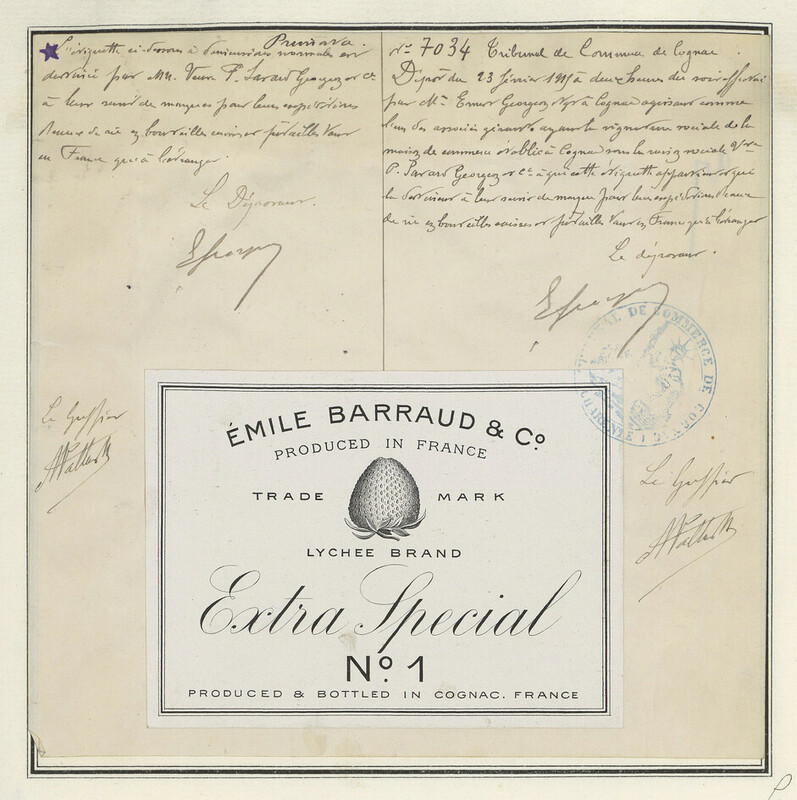 L'étiquette ci-dessus à dimensions normales est
destinée par MM. Veuve P. Savard Georgez et Cie
à leur servir de marque pour leurs expéditions
d'eaux de vie en bouteilles caisses et futailles tant
en France qu'à l'étranger.
Le Déposant.
Le Greffier
No 7034 Tribunal de Commerce de Cognac.
Dépôt du 23 février à deux heures du soir effectué
par Mr. Georgez à Cognac agissant comme
l'un des associés gérants ayant la signature sociale de la
maison de commerce établie à Cognac sous la raison sociale
P. Savard Georgez et Cie à qui cette étiquette appartient et qui
la destine à leur servir de marque pour leurs expéditions d'eaux
de vie en bouteilles caisses et futailles tant en France qu'à l'étranger
Le déposant.
TRIBUNAL DE COMMERCE DE COGNAC
Le Greffier
ÉMILE BARRAUD & Co.
PRODUCED IN FRANCE
TRADE MARK
LYCHEE BRAND
Extra Special
No. 1
PRODUCED & BOTTLED IN COGNAC. FRANCE